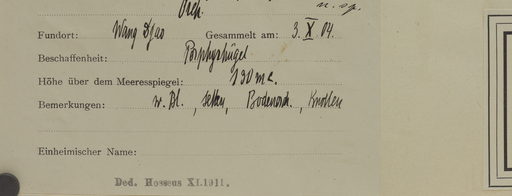 n. sp.
Fundort: Wang Djao Gesammelt am: 3. X. 04.
Beschaffenheit: Porphyrhügel
Höhe über dem Meeresspiegel: 130 m c.
Bemerkungen: w. Bl., selten, Bodenorch., Knollen
Einheimischer Name:
Ded. Hosseus XI.1911.